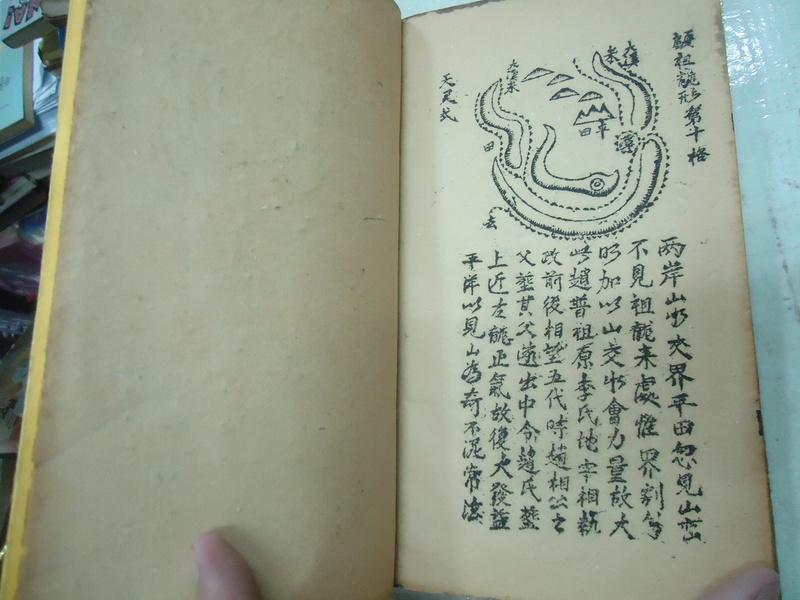 顧祖龍形第十格
水
潭
平
田
田
去
两岸山水交界平田忽見山峦
不見祖龍来處惟界割分
明加以山交水會力量故大
此趙普祖原李氏地宰相執
政前後相望五代時趙相公之
父塟其父遂出中令趙氏塟
上近左龍正氣故後大發蓋
平洋以見山為奇不泥常法